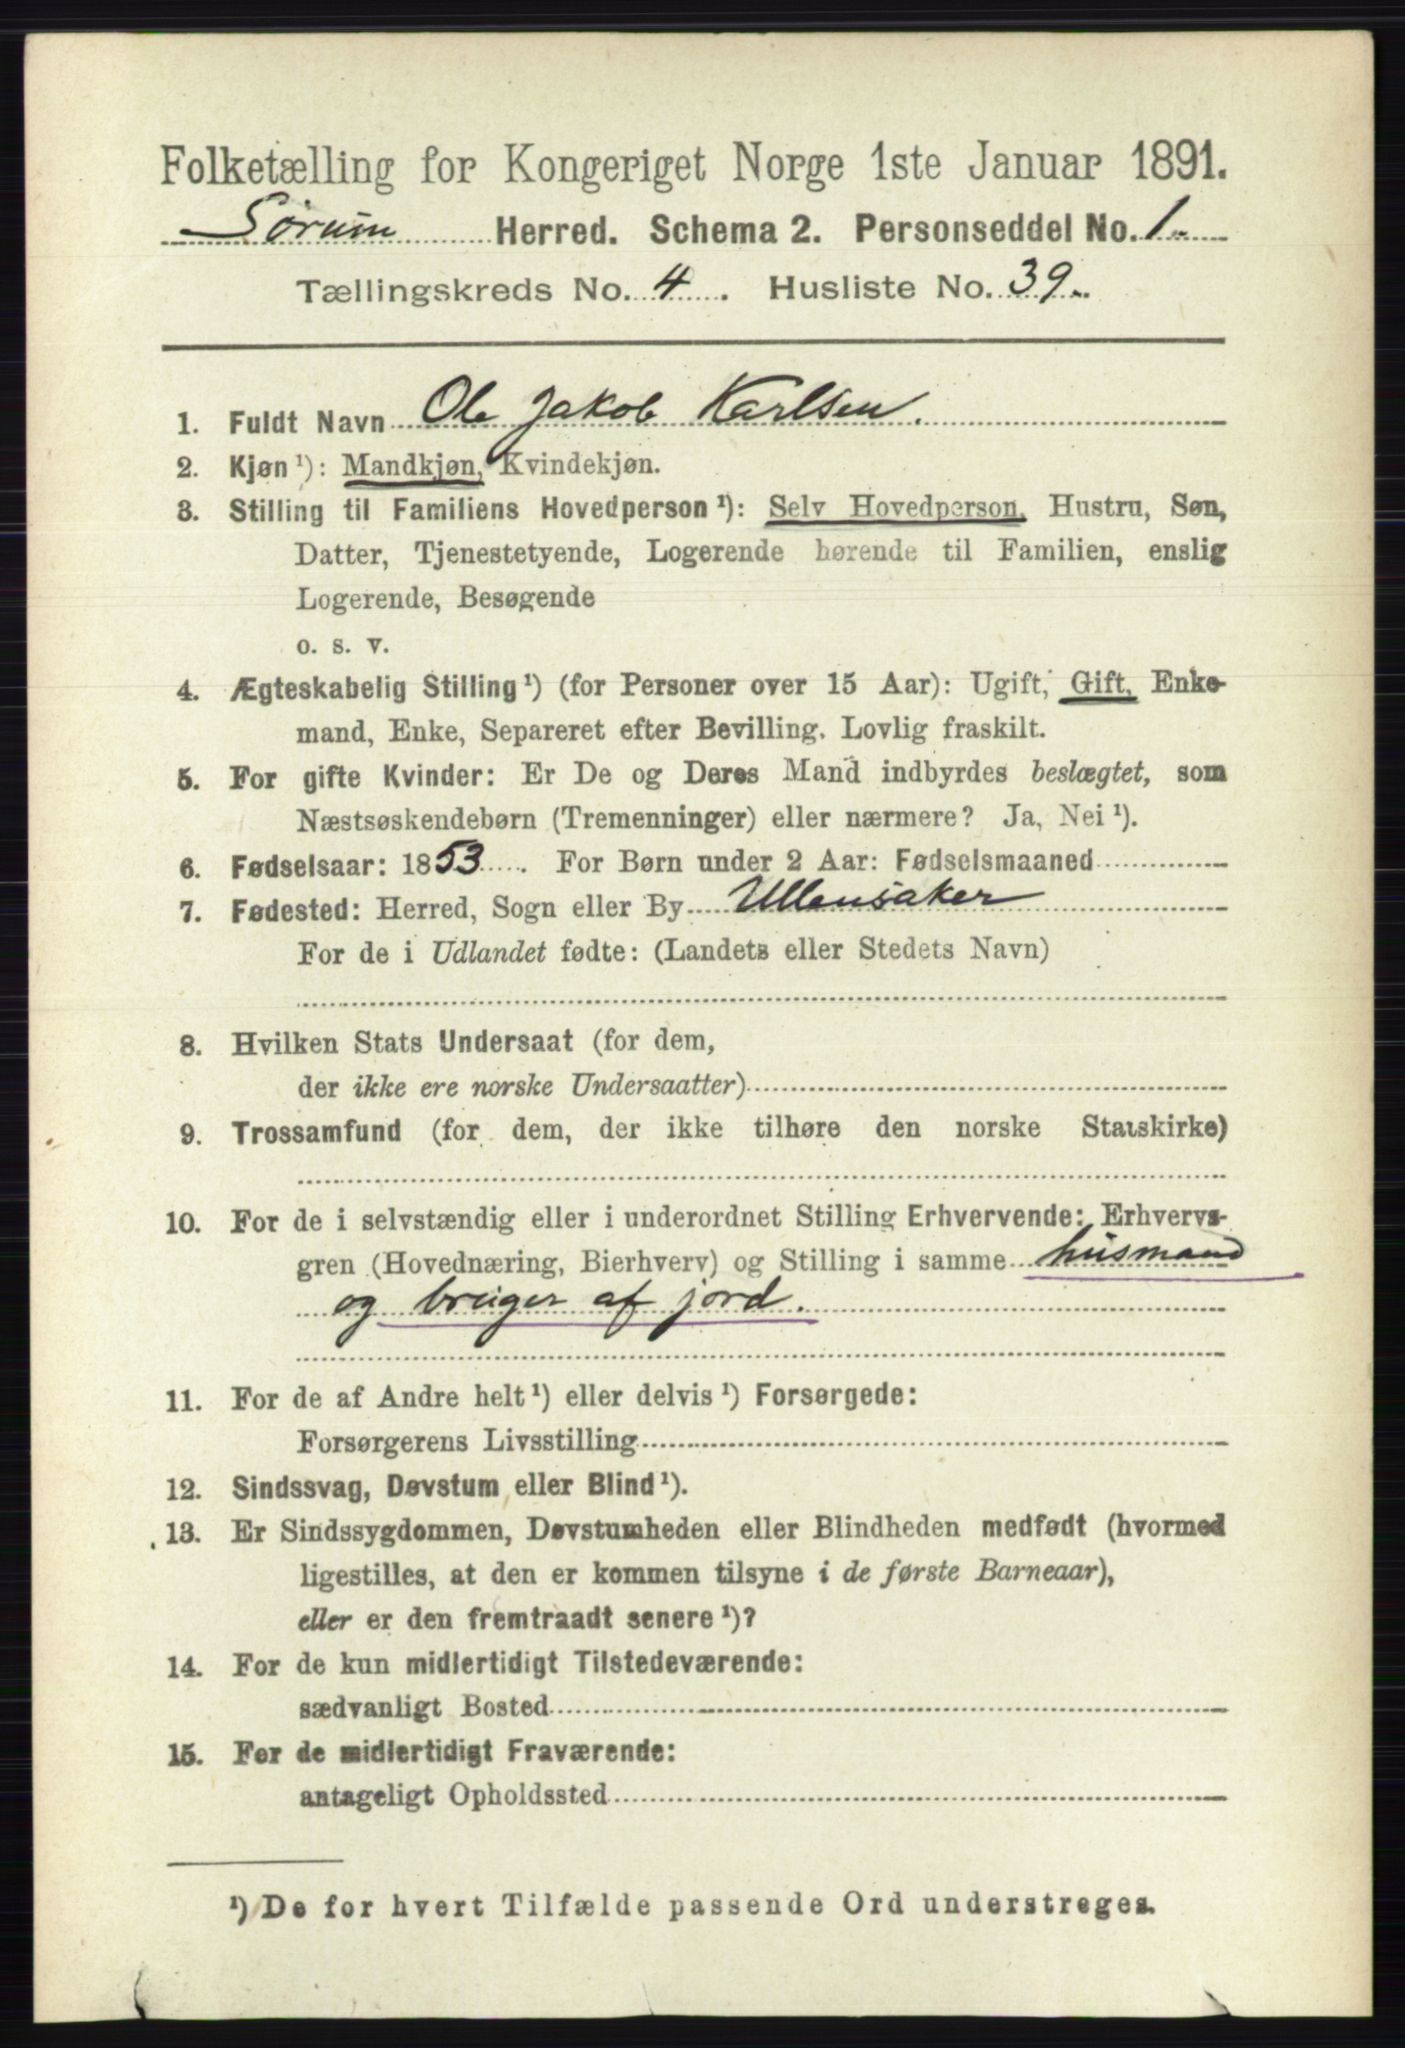 Folketælling for Kongeriget Norge 1ste Januar 1891.
Sørum Herred. Schema 2. Personseddel No. 1.
Tællingskreds No. 4. Husliste No. 39.
1. Fuldt Navn Ole Jakob Karlsen.
2. Kjøn ¹): Mandkjøn, Kvindekjøn.
3. Stilling til Familiens Hovedperson ¹): Selv Hovedperson, Hustru, Søn,
Datter, Tjenestetyende, Logerende hørende til Familien, enslig
Logerende, Besøgende
o. s. v.
4. Ægteskabelig Stilling ¹) (for Personer over 15 Aar): Ugift, Gift, Enke-
mand, Enke, Separeret efter Bevilling. Lovlig fraskilt.
5. For gifte Kvinder: Er De og Deres Mand indbyrdes beslægtet, som
Næstsøskendebørn (Tremenninger) eller nærmere? Ja, Nei ¹).
6. Fødselsaar: 1853. For Børn under 2 Aar: Fødselsmaaned
7. Fødested: Herred, Sogn eller By Ullensaker
For de i Udlandet fødte: (Landets eller Stedets Navn)
8. Hvilken Stats Undersaat (for dem,
der ikke ere norske Undersaatter)
9. Trossamfund (for dem, der ikke tilhøre den norske Statskirke)
10. For de i selvstændig eller i underordnet Stilling Erhvervende: Erhvervs-
gren (Hovednæring, Bierhverv) og Stilling i samme husmand
og bruger af jord.
11. For de af Andre helt ¹) eller delvis ¹) Forsørgede:
Forsørgerens Livsstilling
12. Sindssvag, Døvstum eller Blind ¹).
13. Er Sindssygdommen, Døvstumheden eller Blindheden medfødt (hvormed
ligestilles, at den er kommen tilsyne i de første Barneaar),
eller er den fremtraadt senere ¹)?
14. For de kun midlertidigt Tilstedeværende:
sædvanligt Bosted
15. For de midlertidigt Fraværende:
antageligt Opholdssted
¹) De for hvert Tilfælde passende Ord understreges.